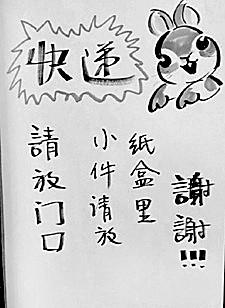 快递
請放门口
小件请放
纸盒里
謝謝!!!